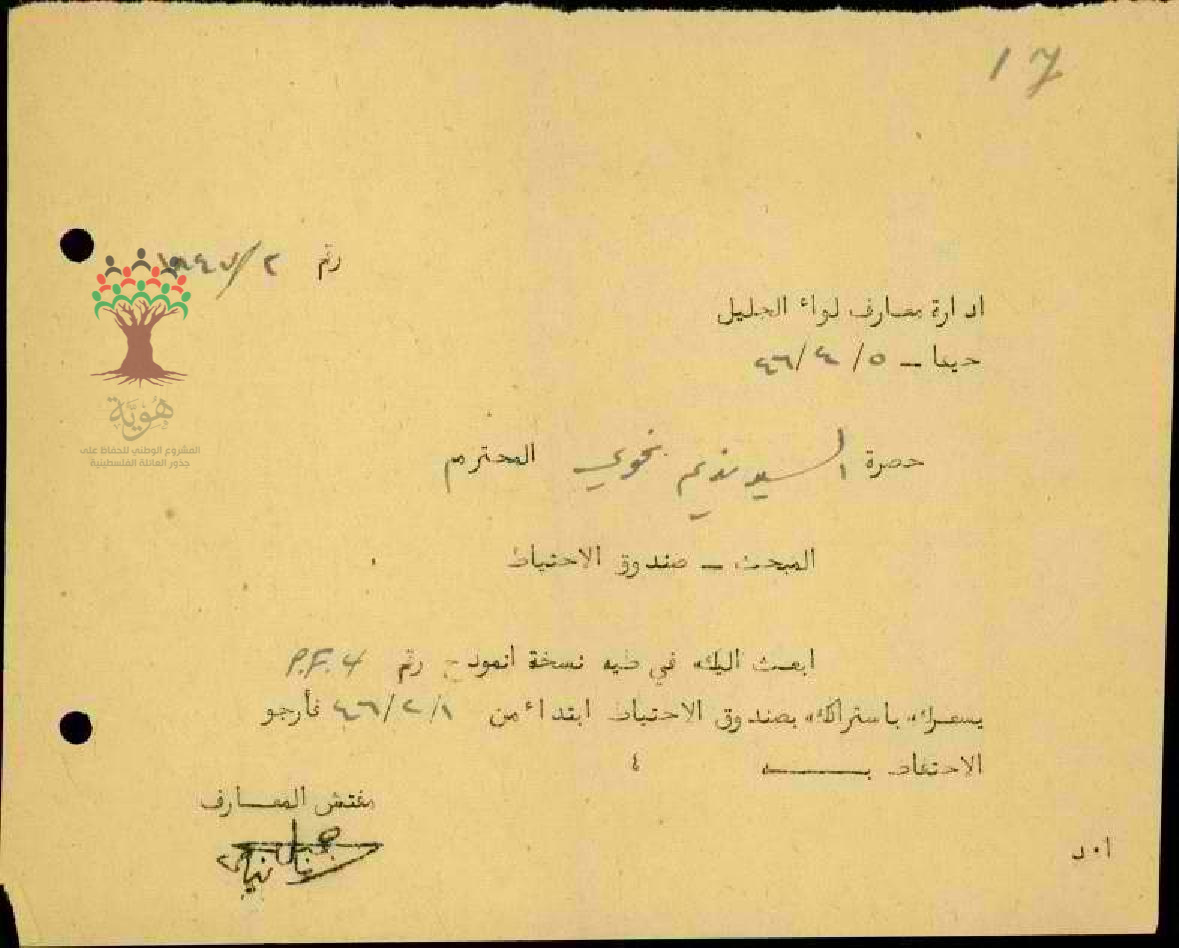 17
رقم ٢/
ادارة معارف لواء الجليل
حيفا – ٤٦/٤/٥
حضرة السيد نديم نحوي المحترم
المبحث – صندوق الاحتياط
ابعث اليك في طيه نسخة انموذج رقم P.F. 4
يشعرك باشتراكك بصندوق الاحتياط ابتداء من ٤٦/٢/١ فأرجو
الاحتفاظ بـــه ٤
مفتش المعـــارف
ا٠د
هُوِيَّة
المشروع الوطني للحفاظ على
جذور العائلة الفلسطينية